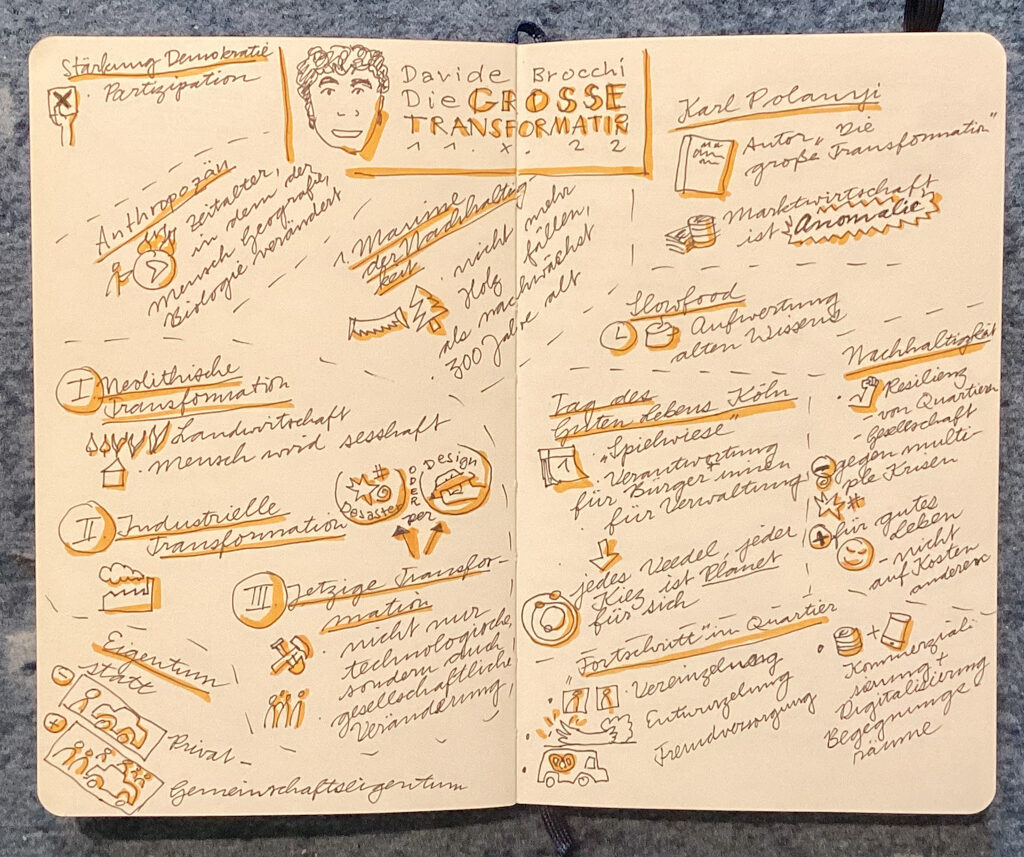 Stärkung Demokratie
· Partizipation
Davide Brocchi
Die GROSSE
TRANSFORMATION
11.X.22
Anthropozän
· Zeitalter,
in dem der
Mensch Geografie,
Biologie verändert
1. Maxime
der Nachhaltig-
keit
· nicht mehr
Holz fällen,
als nachwächst
· 300 Jahre alt
Karl Polanyi
Autor „Die
große Transformation"
· Marktwirtschaft
ist Anomalie
Slowfood
Aufwertung
alten Wissens
I Neolithische
Transformation
Landwirtschaft
· Mensch wird sesshaft
II Industrielle
Transformation
#
Desaster
ODER
per
Design
III Jetzige Transfor-
mation
· nicht nur
technologische,
sondern auch
gesellschaftliche
Veränderung,
Eigentum
statt
Privat-
Gemeinschaftseigentum
Tag des
Guten Lebens Köln
· „Spielwiese"
· Verantwortung
für Bürger*innen
für Verwaltung
jedes Veedel, jeder
Kiez ist Planet
für sich
Nachhaltigkeit
· Resilienz
- von Quartieren
- Gesellschaft
gegen multi-
ple Krisen
#
+ für gutes
Leben
- nicht
auf Kosten
anderer
„Fortschritt" im Quartier
· Vereinzelung
· Entwurzelung
· Fremdversorgung
+
· Kommerziali-
sierung +
Digitalisierung
Begegnungs-
räume